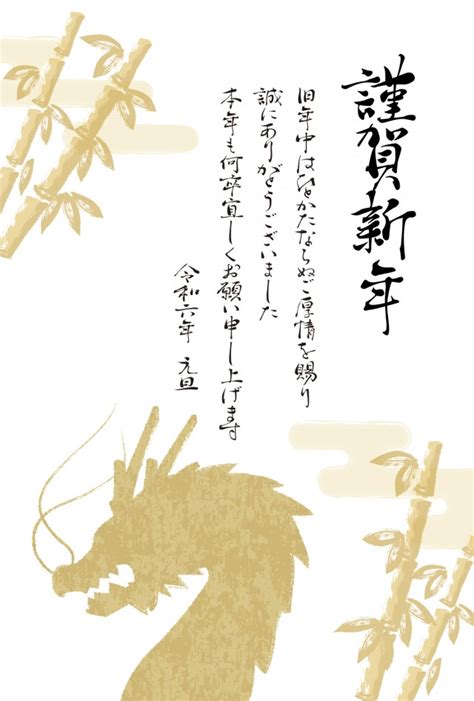 謹賀新年
旧年中はひとかたならぬご厚情を賜り
誠にありがとうございました
本年も何卒宜しくお願い申し上げます
令和六年 元旦